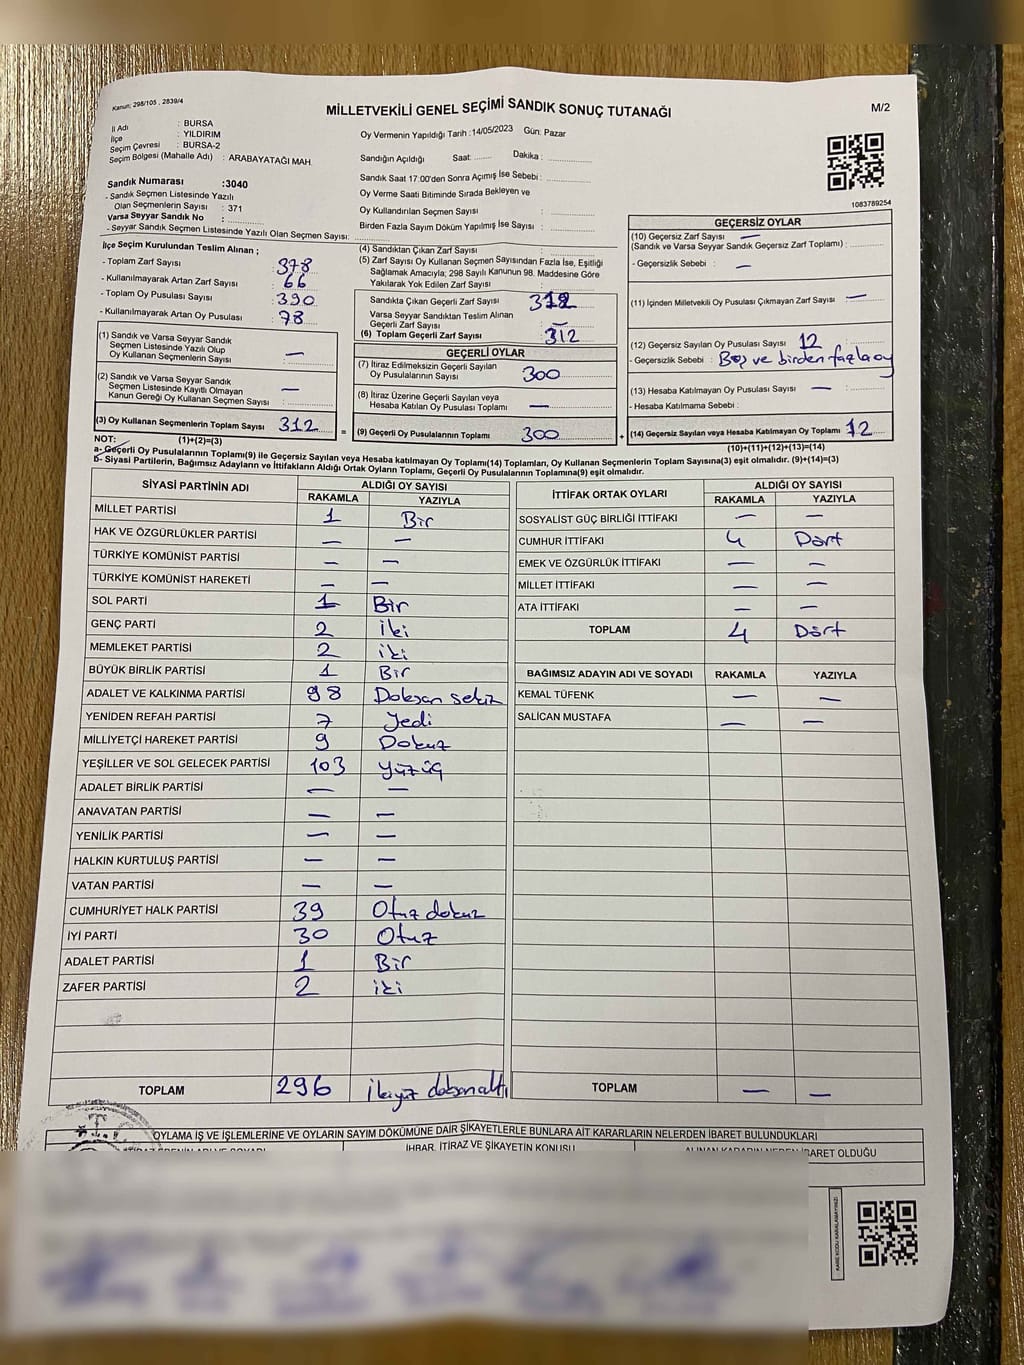 Kanun: 298/105 , 2839/4
MİLLETVEKİLİ GENEL SEÇİMİ SANDIK SONUÇ TUTANAĞI
M/2
İl Adı : BURSA
İlçe : YILDIRIM
Seçim Çevresi : BURSA-2
Seçim Bölgesi (Mahalle Adı) : ARABAYATAĞI MAH.
Oy Vermenin Yapıldığı Tarih :14/05/2023 Gün: Pazar
Sandığın Açıldığı Saat: Dakika :
Sandık Saat 17:00'den Sonra Açımış İse Sebebi :
Oy Verme Saati Bitiminde Sırada Bekleyen ve
Oy Kullandırılan Seçmen Sayısı :
Birden Fazla Sayım Döküm Yapılmış İse Sayısı :
1083789254
Sandık Numarası :3040
- Sandık Seçmen Listesinde Yazılı
Olan Seçmenlerin Sayısı : 371
Varsa Seyyar Sandık No :
- Seyyar Sandık Seçmen Listesinde Yazılı Olan Seçmen Sayısı:
İlçe Seçim Kurulundan Teslim Alınan ;
- Toplam Zarf Sayısı : 378
- Kullanılmayarak Artan Zarf Sayısı : 66
- Toplam Oy Pusulası Sayısı : 390
- Kullanılmayarak Artan Oy Pusulası : 78
(1) Sandık ve Varsa Seyyar Sandık
Seçmen Listesinde Yazılı Olup
Oy Kullanan Seçmenlerin Sayısı : —
(2) Sandık ve Varsa Seyyar Sandık
Seçmen Listesinde Kayıtlı Olmayan
Kanun Gereği Oy Kullanan Seçmen Sayısı : —
(3) Oy Kullanan Seçmenlerin Toplam Sayısı : 312
(4) Sandıktan Çıkan Zarf Sayısı :
(5) Zarf Sayısı Oy Kullanan Seçmen Sayısından Fazla İse, Eşitliği
Sağlamak Amacıyla; 298 Sayılı Kanunun 98. Maddesine Göre
Yakılarak Yok Edilen Zarf Sayısı :
Sandıkta Çıkan Geçerli Zarf Sayısı : 312
Varsa Seyyar Sandıktan Teslim Alınan
Geçerli Zarf Sayısı : —
(6) Toplam Geçerli Zarf Sayısı : 312
GEÇERLİ OYLAR
(7) İtiraz Edilmeksizin Geçerli Sayılan
Oy Pusulalarının Sayısı : 300
(8) İtiraz Üzerine Geçerli Sayılan veya
Hesaba Katılan Oy Pusulası Toplamı : —
= (9) Geçerli Oy Pusulalarının Toplamı : 300 +
GEÇERSİZ OYLAR
(10) Geçersiz Zarf Sayısı —
(Sandık ve Varsa Seyyar Sandık Geçersiz Zarf Toplamı) :
- Geçersizlik Sebebi : —
(11) İçinden Milletvekili Oy Pusulası Çıkmayan Zarf Sayısı : —
(12) Geçersiz Sayılan Oy Pusulası Sayısı : 12
- Geçersizlik Sebebi : Boş ve birden fazla oy
(13) Hesaba Katılmayan Oy Pusulası Sayısı : —
- Hesaba Katılmama Sebebi :
(14) Geçersiz Sayılan veya Hesaba Katılmayan Oy Toplamı : 12
NOT: (1)+(2)=(3)
(10)+(11)+(12)+(13)=(14)
a- Geçerli Oy Pusulalarının Toplamı(9) ile Geçersiz Sayılan veya Hesaba katılmayan Oy Toplamı(14) Toplamları, Oy Kullanan Seçmenlerin Toplam Sayısına(3) eşit olmalıdır. (9)+(14)=(3)
b- Siyasi Partilerin, Bağımsız Adayların ve İttifakların Aldığı Ortak Oyların Toplamı, Geçerli Oy Pusulalarının Toplamına(9) eşit olmalıdır.
SİYASİ PARTİNİN ADI ALDIĞI OY SAYISI
RAKAMLA YAZIYLA
MİLLET PARTİSİ 1 Bir
HAK VE ÖZGÜRLÜKLER PARTİSİ — —
TÜRKİYE KOMÜNİST PARTİSİ — —
TÜRKİYE KOMÜNİST HAREKETİ — —
SOL PARTİ 1 Bir
GENÇ PARTİ 2 iki
MEMLEKET PARTİSİ 2 iki
BÜYÜK BİRLİK PARTİSİ 1 Bir
ADALET VE KALKINMA PARTİSİ 98 Doksan sekiz
YENİDEN REFAH PARTİSİ 7 Yedi
MİLLİYETÇİ HAREKET PARTİSİ 9 Dokuz
YEŞİLLER VE SOL GELECEK PARTİSİ 103 Yüzüç
ADALET BİRLİK PARTİSİ — —
ANAVATAN PARTİSİ — —
YENİLİK PARTİSİ — —
HALKIN KURTULUŞ PARTİSİ — —
VATAN PARTİSİ — —
CUMHURİYET HALK PARTİSİ 39 Otuz dokuz
İYİ PARTİ 30 Otuz
ADALET PARTİSİ 1 Bir
ZAFER PARTİSİ 2 iki
TOPLAM 296 ikiyüz doksan altı
İTTİFAK ORTAK OYLARI ALDIĞI OY SAYISI
RAKAMLA YAZIYLA
SOSYALİST GÜÇ BİRLİĞİ İTTİFAKI — —
CUMHUR İTTİFAKI 4 Dört
EMEK VE ÖZGÜRLÜK İTTİFAKI — —
MİLLET İTTİFAKI — —
ATA İTTİFAKI — —
TOPLAM 4 Dört
BAĞIMSIZ ADAYIN ADI VE SOYADI RAKAMLA YAZIYLA
KEMAL TÜFENK — —
SALİCAN MUSTAFA — —
TOPLAM — —
OYLAMA İŞ VE İŞLEMLERİNE VE OYLARIN SAYIM DÖKÜMÜNE DAİR ŞİKAYETLERLE BUNLARA AİT KARARLARIN NELERDEN İBARET BULUNDUKLARI
İHBAR, İTİRAZ VE ŞİKAYETİN KONUSU
ALINAN KARARIN NEDEN İBARET OLDUĞU
KARE KODU KARALAMAYINIZ!